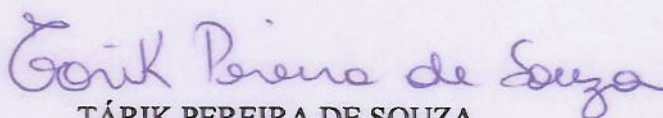 Tárik Pereira de Souza
TÁRIK PEREIRA DE SOUZA